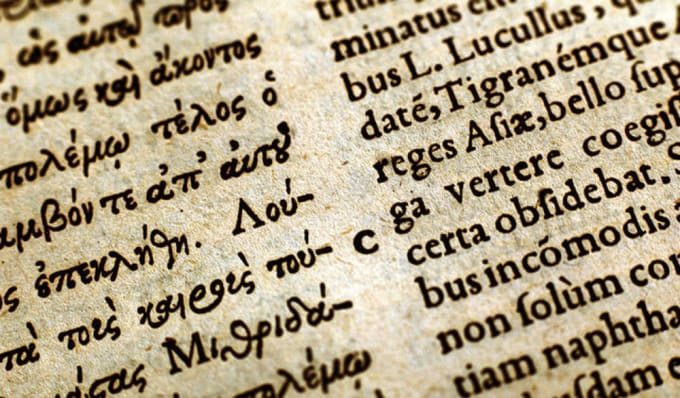 ὡς αὐτοῦ
ὅμως καὶ ἄκοντος
πολέμῳ τέλος ὁ
τε ἀπ' αὐτοῦ
ἐπεκλήθη. Λού-
τὰ τοὺς καιροὺς τού-
Μιθριδά-
πολέμῳ
minatus
bus L. Lucullus,
daté, Tigranémque
reges Aſiæ, bello ſup
C
ga vertere coegiſ
certa obſidebat. S
bus incómodis a
non ſolùm con
tiam naphtha